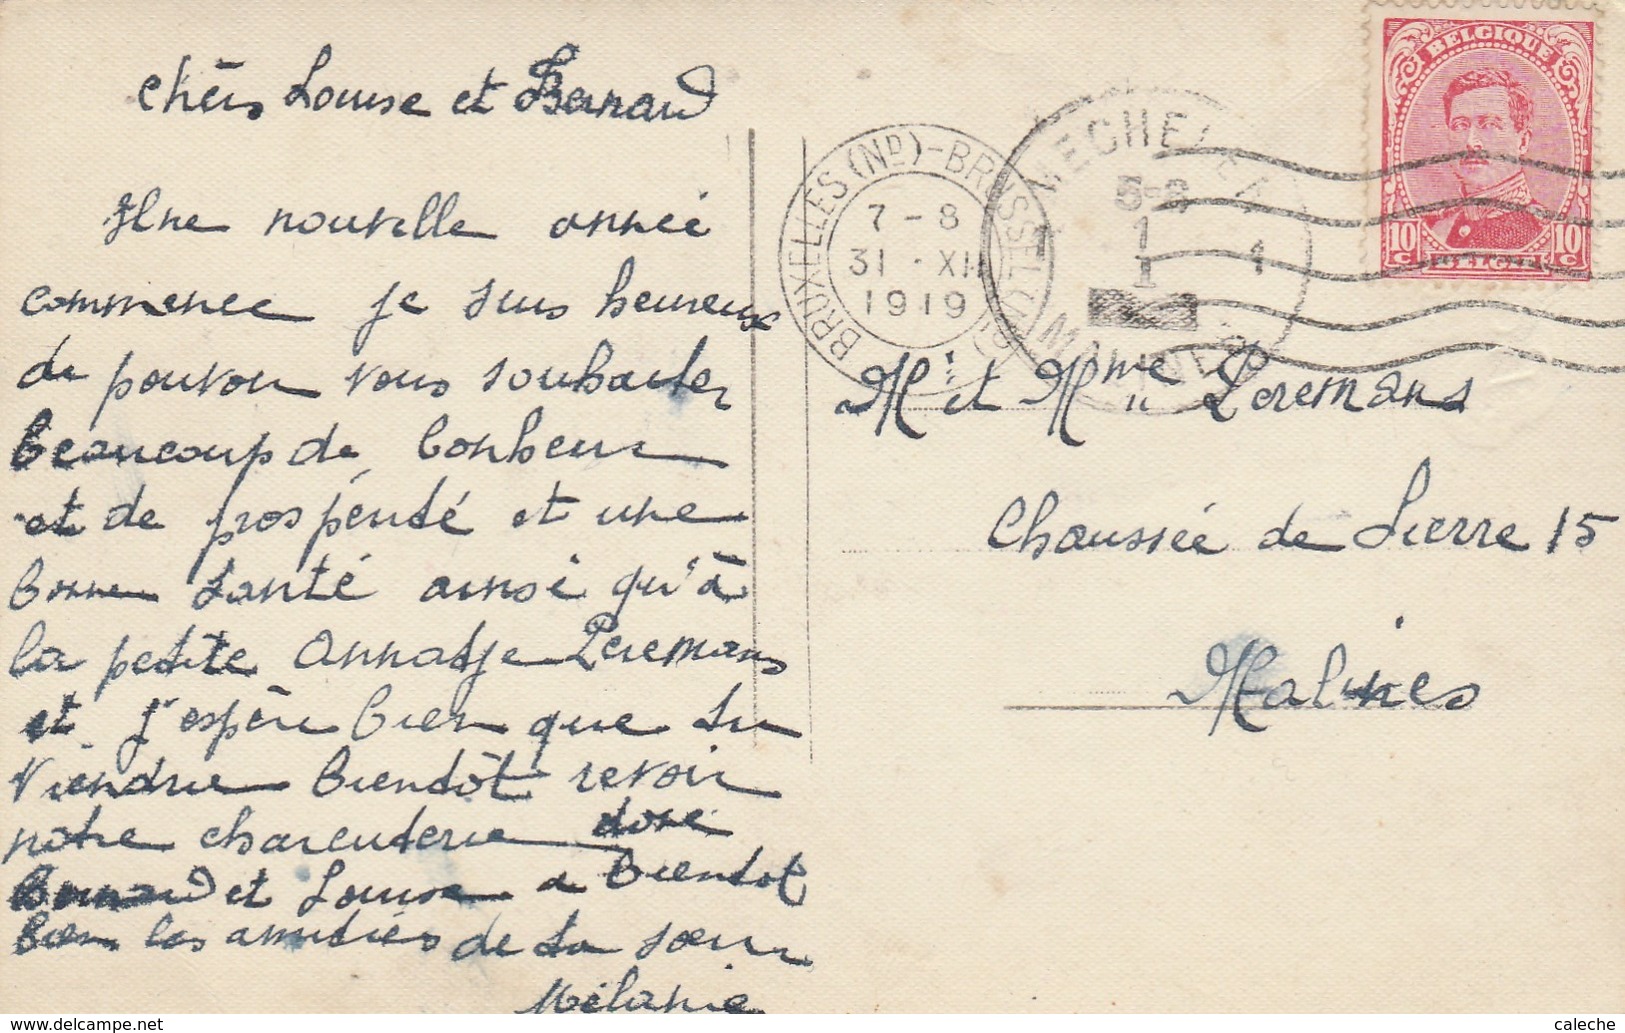 chèrs Louise et Bernard
Une nouvelle année
commence je suis heureux
de pouvoir vous souhaiter
beaucoup de bonheur
et de prospérité et une
bonne santé ainsi qu'à
la petite Annatje Peremans
et j'espère bien que tu
viendras bientôt revoir
notre charcuterie
Bernard et Louise a bientot
bien les amitiés de ta sœur
Mélanie
BELGIQUE
10 c 10 c
BELGIË
BRUXELLES (ND) - BRUSSEL
7 - 8
31 · XII
1919
MECHELEN
1
1
1 1
MALINES
Mr et Mme Peremans
Chaussée de Lierre 15
Malines
caleche